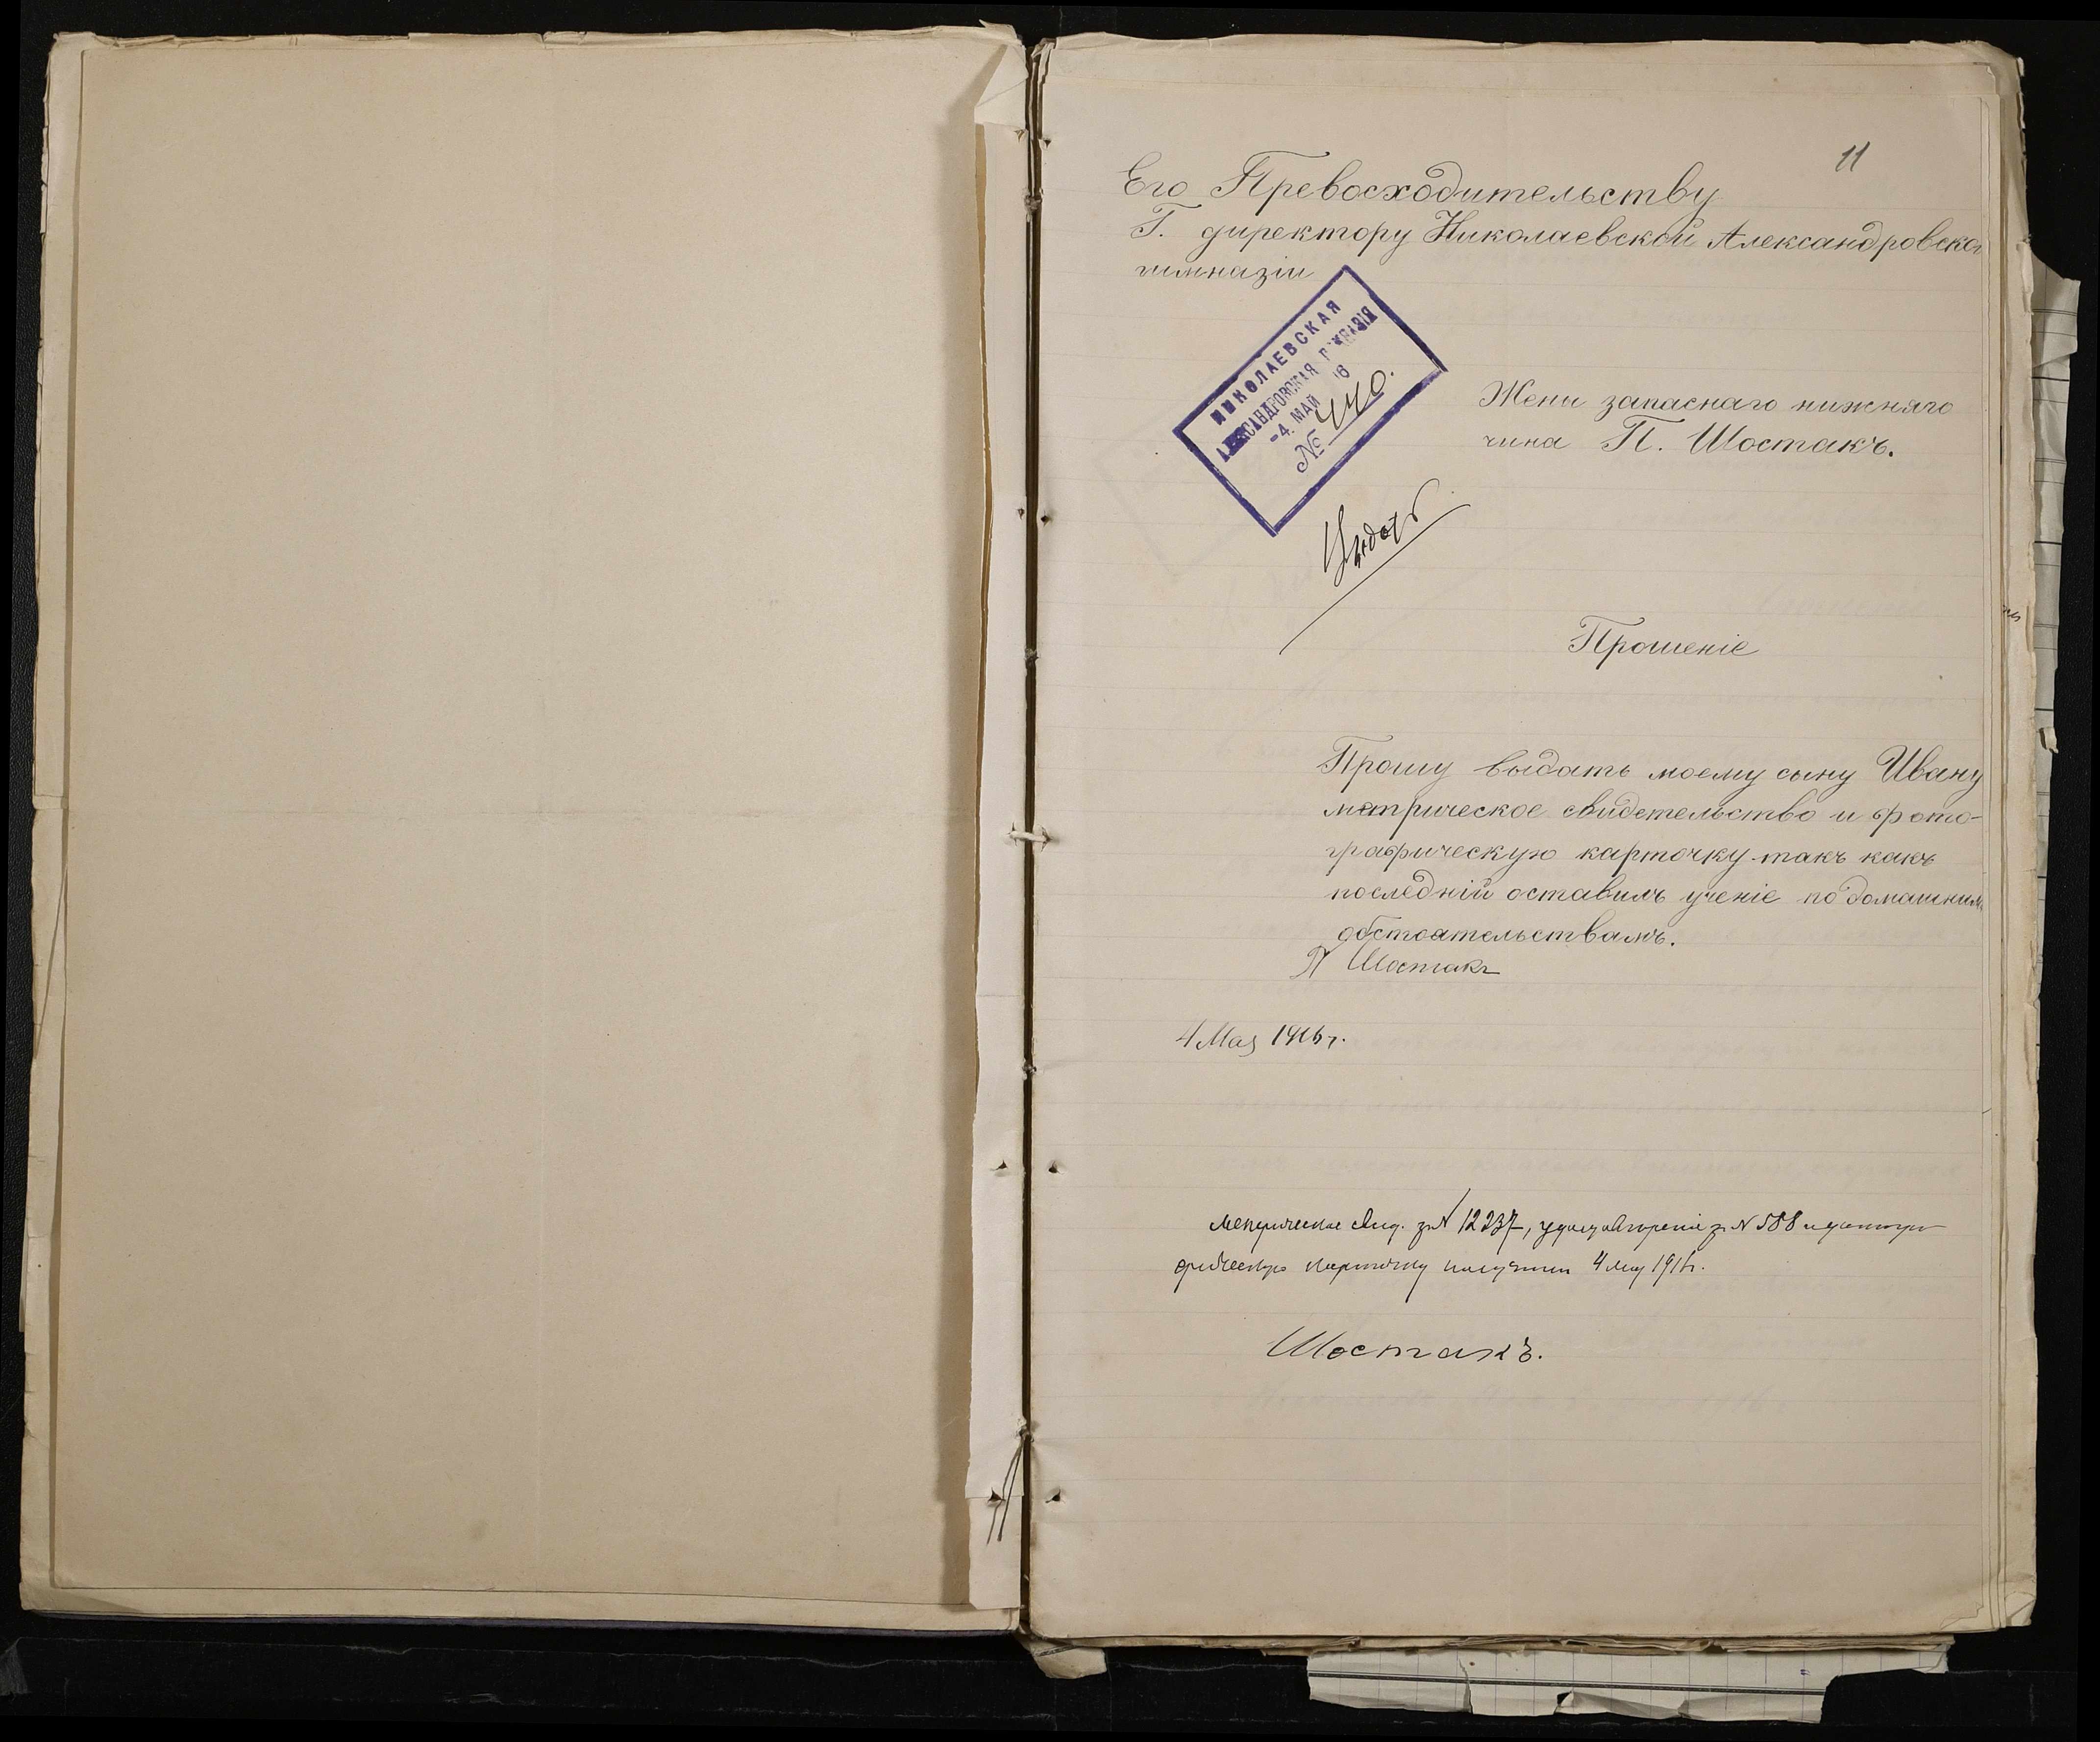 11
Его Превосходительству
Г. директору Николаевской Александровской
гимназіи
НИКОЛАЕВСКАЯ
АЛЕКСАНДРОВСКАЯ ГИМНАЗІЯ
-4. МАЙ 16
№ 440.
Жены запаснаго нижняго
чина П. Шостакъ.
Выдать
Прошеніе
Прошу выдать моему сыну Ивану
метрическое свидетельство и фото-
графическую карточку такъ какъ
последній оставилъ ученіе по домашнимъ
обстоятельствамъ.
П Шостакъ
4 Мая 1916 г.
Метрическое свид. за № 12237, удостовѣреніе за № 588 и фотогра
фическую карточку получилъ 4 мая 1916 г.
Шостакъ.